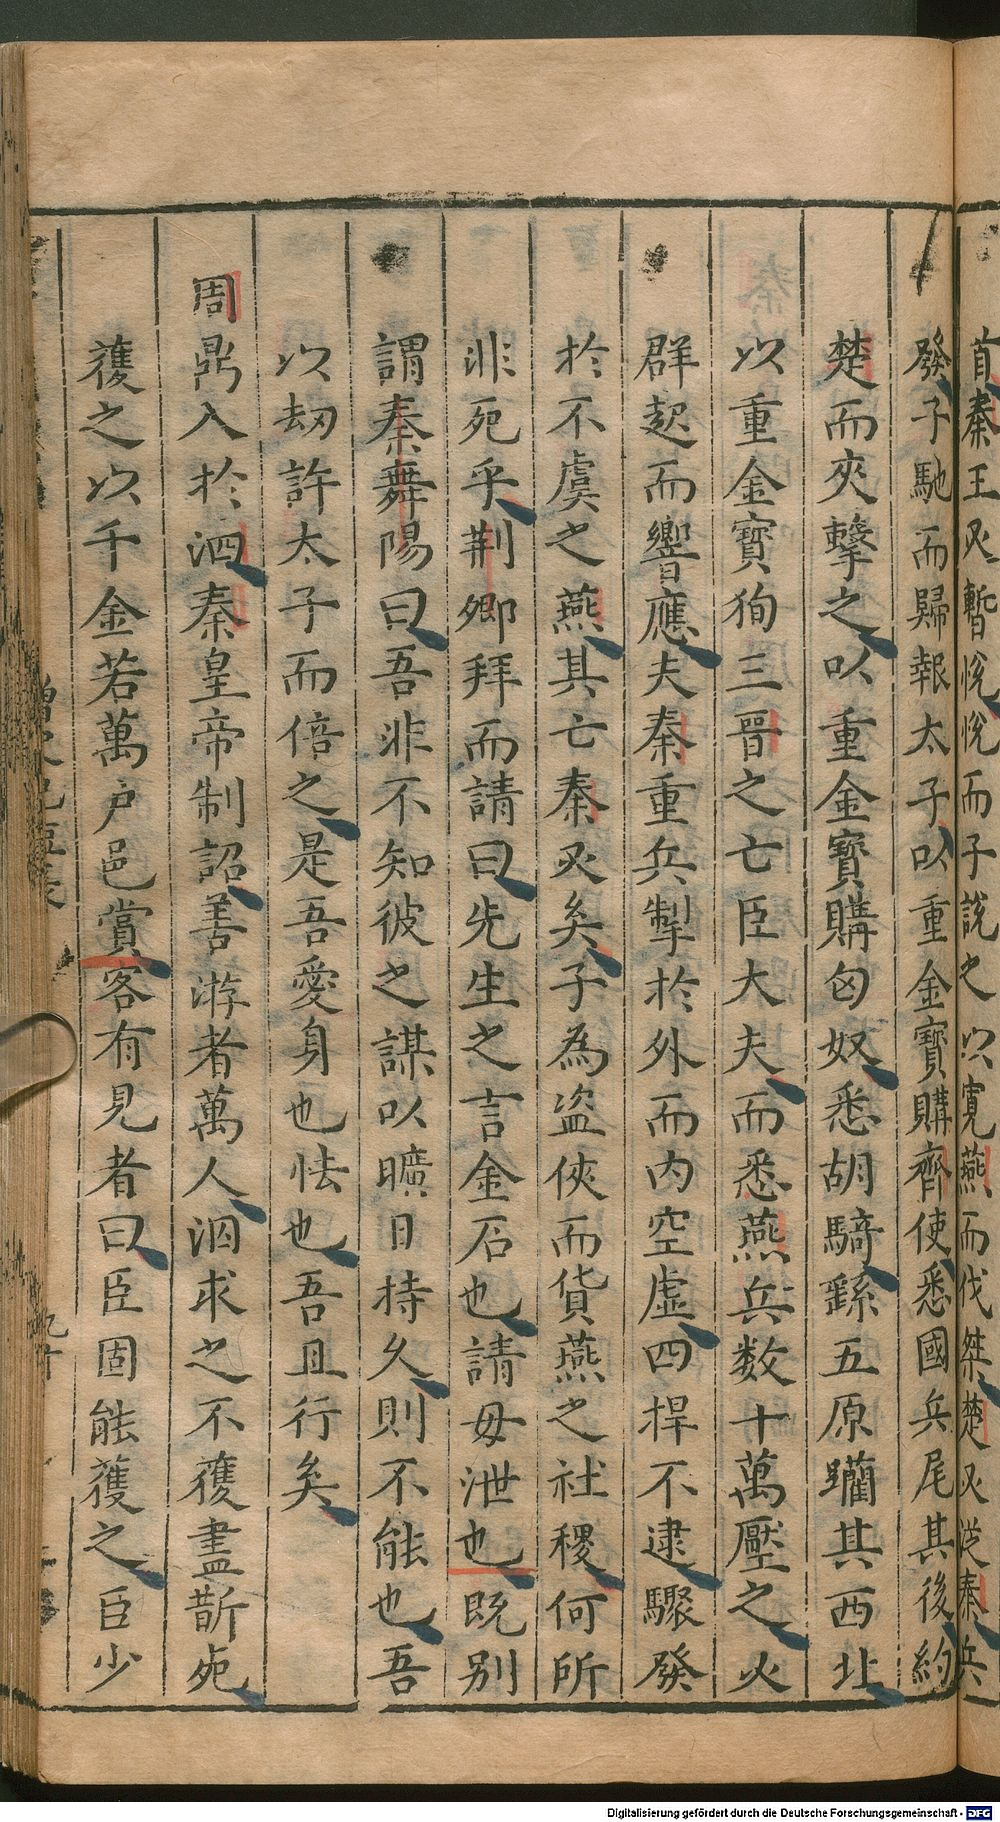 首秦王必暫悅悅而子說之以寬燕而伐桀楚必從秦兵
發子馳而歸報太子以重金寶購齊使悉國兵尾其後約
楚而夾擊之以重金寶購匈奴悉胡騎繇五原躪其西北
以重金寶徇三晉之亡臣大夫而悉燕兵数十萬壓之火
群起而響應夫秦重兵掣於外而内空虛四捍不逮驟發
於不虞之燕其亡秦必矣子為盗俠而貨燕之社稷何所
非死乎荆卿拜而請曰先生之言金石也請毋泄也既别
謂秦舞陽曰吾非不知彼之謀以曠日持久則不能也吾
以刼許太子而倍之是吾愛身也怯也吾且行矣
周鼎入於泗秦皇帝制詔善游者萬人泅求之不獲盡斮死
獲之以千金若萬户邑賞客有見者曰臣固能獲之臣少
九十
Digitalisierung gefördert durch die Deutsche Forschungsgemeinschaft - DFG